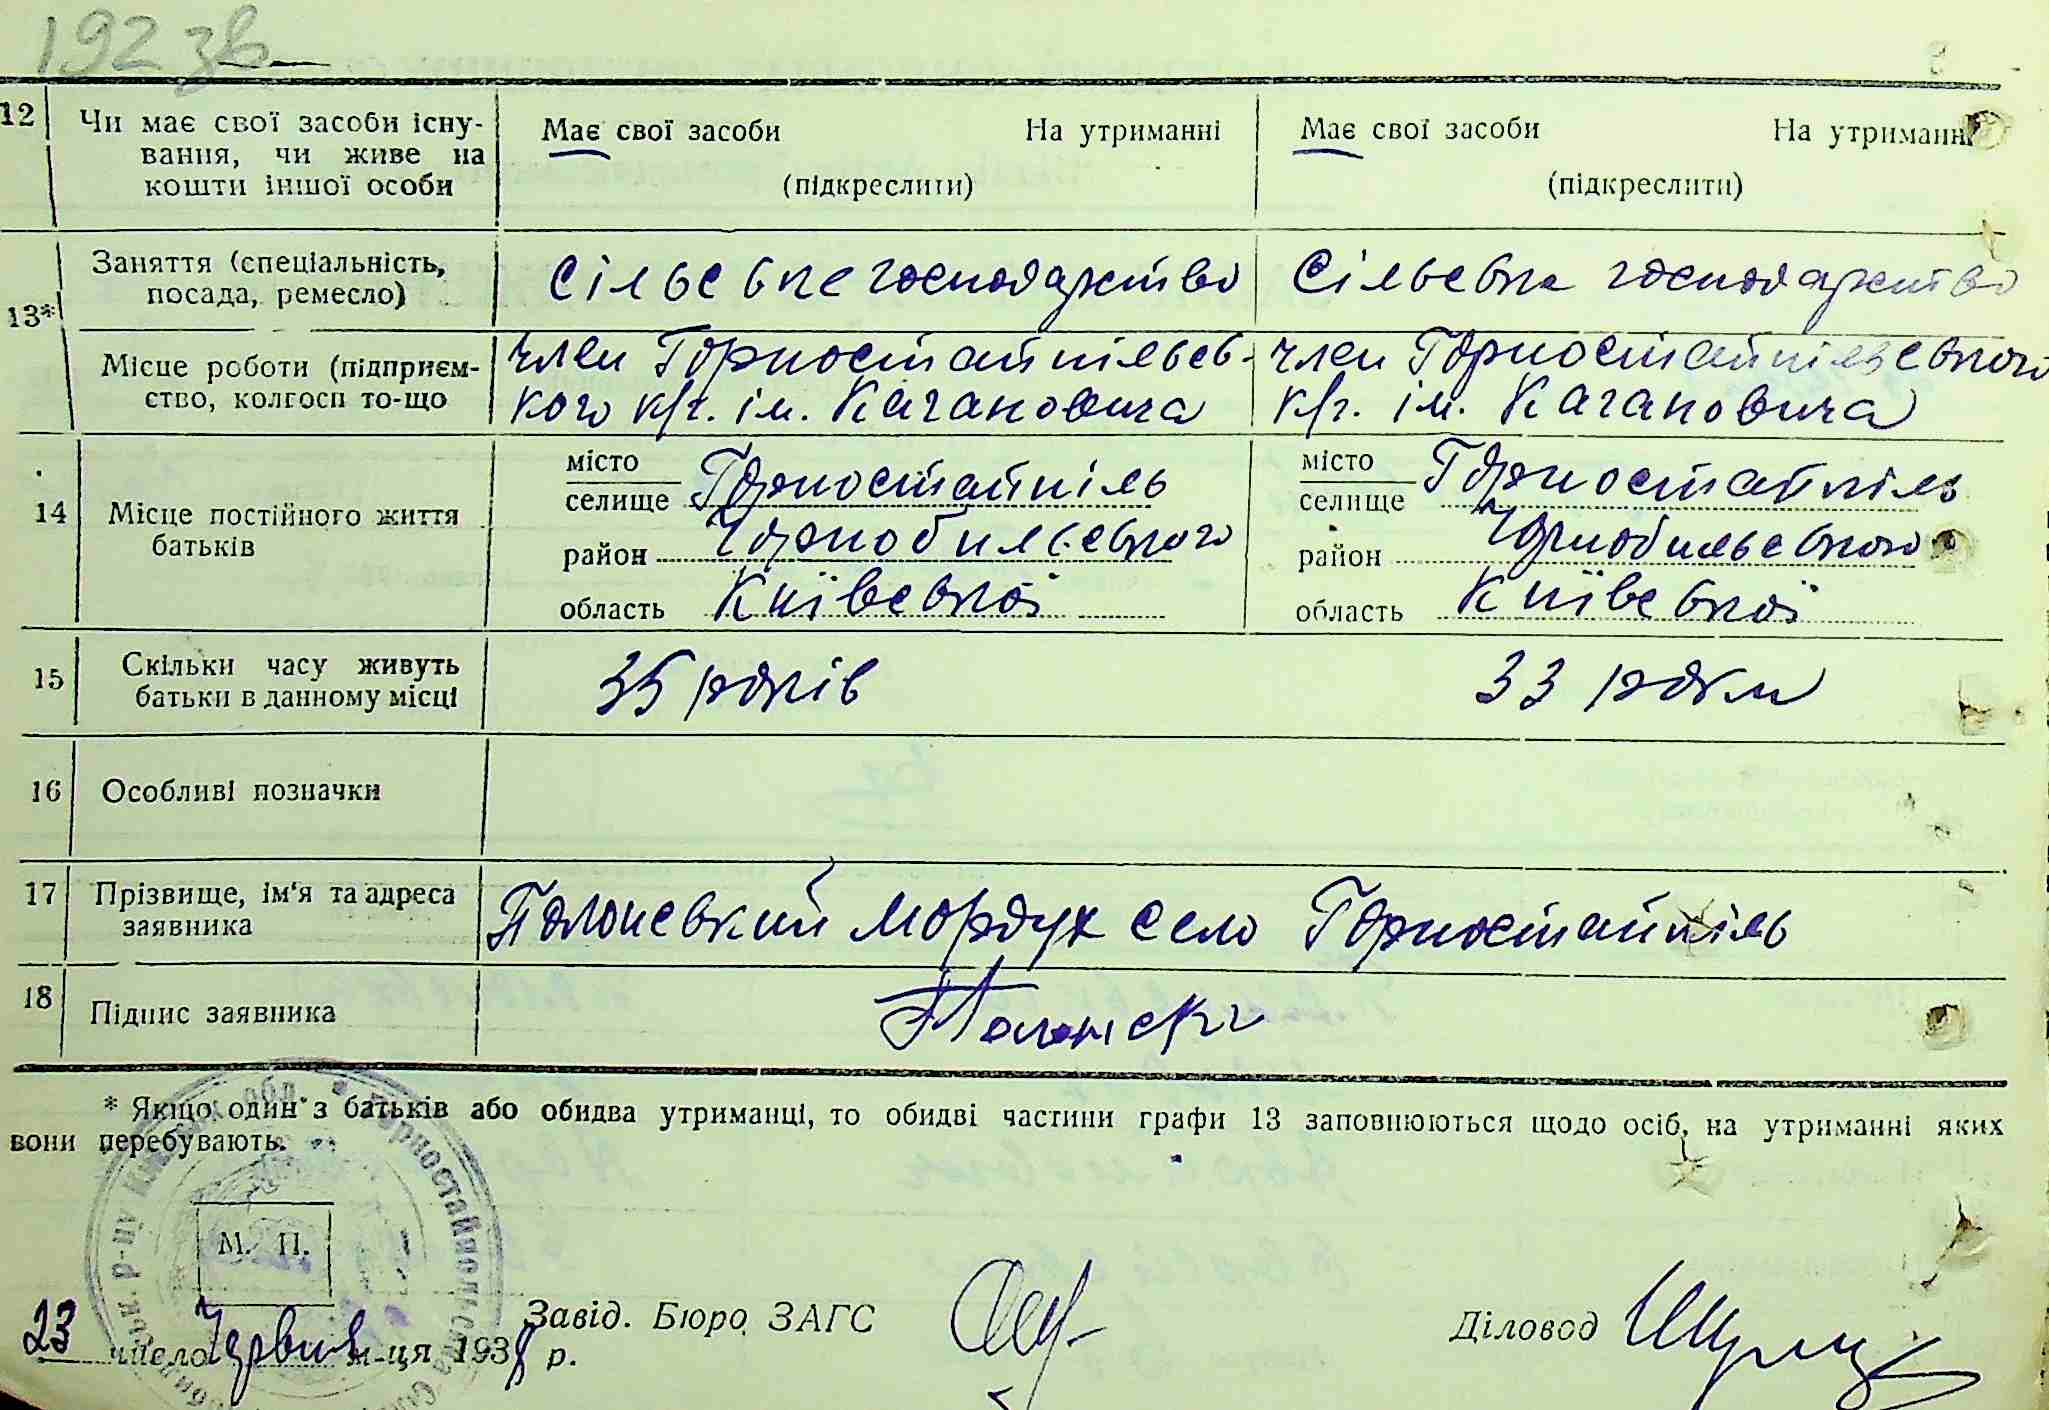 192 зв
12
Чи має свої засоби існу-
вання, чи живе на
кошти іншої особи
Має свої засоби На утриманні
(підкреслити)
Має свої засоби На утриманні
(підкреслити)
13*
Заняття (спеціальність,
посада, ремесло)
Сільське господарство
Сільське господарство
Місце роботи (підприєм-
ство, колгосп то-що
член Горностайпільсь-
кого к/г. ім. Кагановича
член Горностайпільського
к/г. ім. Кагановича
14
Місце постійного життя
батьків
місто
селище Горностайпіль
район Чорнобильського
область Київської
місто
селище Горностайпіль
район Чорнобильського
область Київської
15
Скільки часу живуть
батьки в данному місці
35 років
33 роки
16
Особливі позначки
17
Прізвище, ім'я та адреса
заявника
Полонський Мордух село Горностайпіль
18
Підпис заявника
* Якщо один з батьків або обидва утриманці, то обидві частини графи 13 заповнюються щодо осіб, на утриманні яких
вони перебувають.
М. П.
23 число Червня м-ця 1938 р.
Завід. Бюро ЗАГС
Діловод